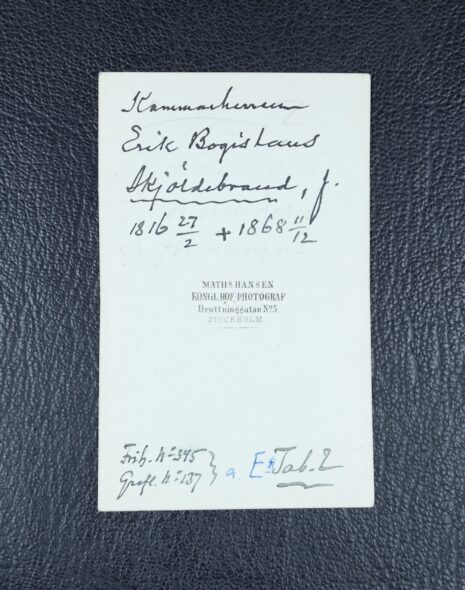 Kammarherren
Erik Bogislaus
Skjöldebrand, f.
1816 27/2 + 1868 11/12
MATHS HANSEN
KONGL. HOF-PHOTOGRAF
Drottninggatan No 5
STOCKHOLM.
Frih. No 345
Grefl. No 137 } a. Tab. 2